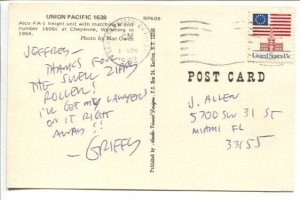 UNION PACIFIC 1638
RP609
Alco FA-1 freight with matching B unit
number 1608c at Cheyenne, Wyoming in
1964.
Photo by Mac Owen
JEFFREY—
THANKS FOR
THE SWELL ZIPPY
ROLLER!
I'LL GET MY LAWYERS
ON IT RIGHT
AWAY!!
—GRIFFY
Published by
P.O. Box
POST CARD
United States 13c
J. ALLEN
5700 SW 31 ST
MIAMI FL
33155